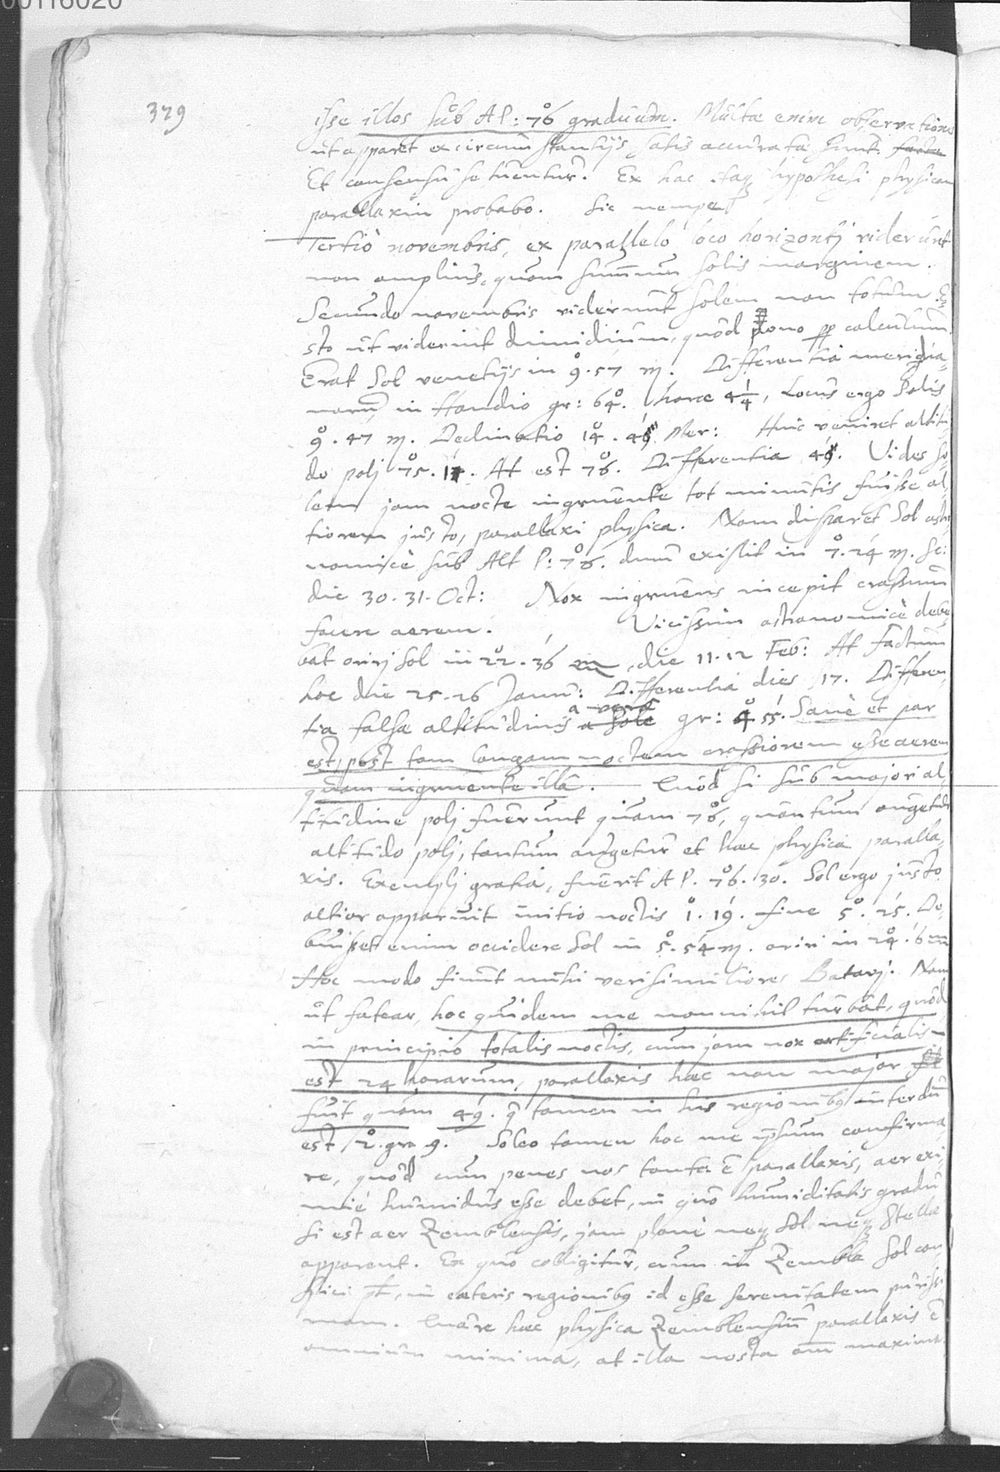 00116020
379
isse illos sub Al: 76° graduum. Multae enim observationes
ut apparet ex circumstantijs satis accuratae sunt.
Et consensu se tuentur. Ex hac itaq hypothesi physicam
parallaxin probabo. Sic nempe
Tertio novembris, ex parallelo loco horizontj viderunt
non amplius, quam summum solis marginem.
Secundo novembris viderunt solem non totum. E
sto ut viderint dimidium, quod pono pp calculum.
Erat Sol venetijs in 9°.57 m. Differentia meridia
norum in Handio gr: 64°. horae 4 1/4, Locus ergo Solis
9°. 47 m. Declinatio 14°. 4 Mer: Huic veniret altitu
do polj 75°. 1. At est 76°. Differentia 49. Vides so
lem jam nocte ingruente tot minutis fuisse al
tiorem justo, parallaxi physica. Nam disparet Sol astro
nomice sub Alt P: 76°. dum existit in 7°. 24 m. Sc:
die 30. 31. Oct: Nox ingruens incepit crassum
facere aerem. Vicissim astronomice debe
bat orirj Sol in 22°. 36 , die 11. 12 Feb: At factum
hoc die 25. 26 Janu: Differentia dies 17. Differen
tia falsae altitudinis a vera a sole gr: 4° 55. Sane et par
est, post tam longam noctem crassiorem esse aerem
quam ingruente illa. Quod si sub majori al
titudine polj fuerunt quam 76°, quantum augetur
altitudo polj, tantum augetur et haec physica paralla
xis. Exemplj gratia, fuerit A P. 76°. 30. Sol ergo justo
altior apparuit initio noctis 1°. 19. fine 5°. 25. De
buisset enim occidere Sol in 5°. 54 m. oriri in 24°. 6
Hoc modo fiunt mihi verisimiliores Batavj. Nam
ut fatear, hoc quidem me nonnihil turbat, quod
in principio totalis noctis, cum jam nox artificialis
est 24 horarum, parallaxis haec non major
fuit quam 49. q tamen in his regionibq interdu
est 2°. gra 9. Soleo tamen hoc me ipsum confirma
re, quod cum penes nos tanta e parallaxis, aer exi
mie humidus esse debet, in quo humiditatis gradu
si est aer Zemblensis, jam plane neq Sol neq Stella
apparent. Ex quo colligitur, cum in Zembla Sol con
spici pt, in caeteris regionibq id esse serenitatem puriss
mam. Quare haec physica Zemblensium parallaxis e
omnium minima, at illa nostra om maxima